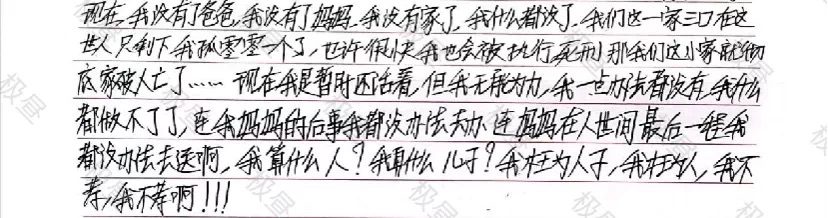 现在,我没有了爸爸,我没有了妈妈,我没有家了,我什么都没了,我们这一家三口在这
世人只剩下我孤零零一个了,也许很快我也会被执行死刑那我们这小家就彻
底家破人亡了……现在我是暂时还活着,但我无能为力,我一点办法都没有,我什么
都做不了了,连我妈妈的后事我都没办法去办连妈妈在人世间最后一程我
都没办法去送啊,我算什么人?我算什么儿子?我枉为人子,我枉为人,我不
孝,我不孝啊!!!
极昼
极昼
极昼
极昼
极昼
极昼